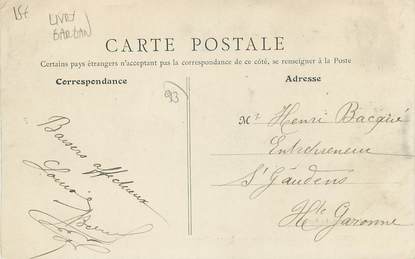 15€
LIVRY
GARGAN
CARTE POSTALE
Certains pays étrangers n'acceptant pas la correspondance de ce côté, se renseigner à la Poste
Correspondance
Adresse
93
Baisers affectueux
Louis
Mr Henri Bacqué
Entrepreneur
St Gaudens
Hte Garonne